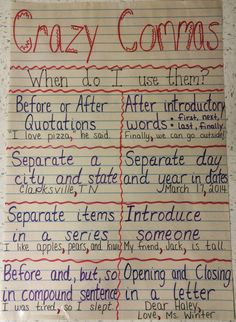 Crazy Commas
When do I use them?
Before or After
Quotations
"I love pizza," he said.
After introductory
words • first, next,
• last, finally
Finally, we can go outside!
Separate a
city and state
Clarksville, TN
Separate day
and year in dates
March 17, 2014
Separate items
in a series
I like apples, pears, and kiwi.
Introduce
someone
My friend, Jack, is tall.
Before and, but, so
in compound sentence
I was tired, so I slept.
Opening and Closing
in a letter
Dear Haley,
Love, Ms. Winter